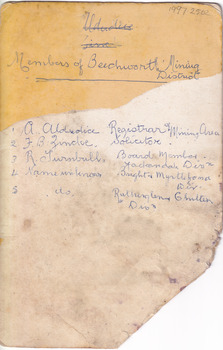 1997.2501
Members of Beechworth Mining
District
1 A. Aldedice Registrar Mining Area
2 F. B. Zincke Solicitor.
3 R. Turnbull Board Member
Yackandah Divn
4 Name unknown Bright & Myrtleford
Div.
5 do Rutherglen & Chiltern
Divn